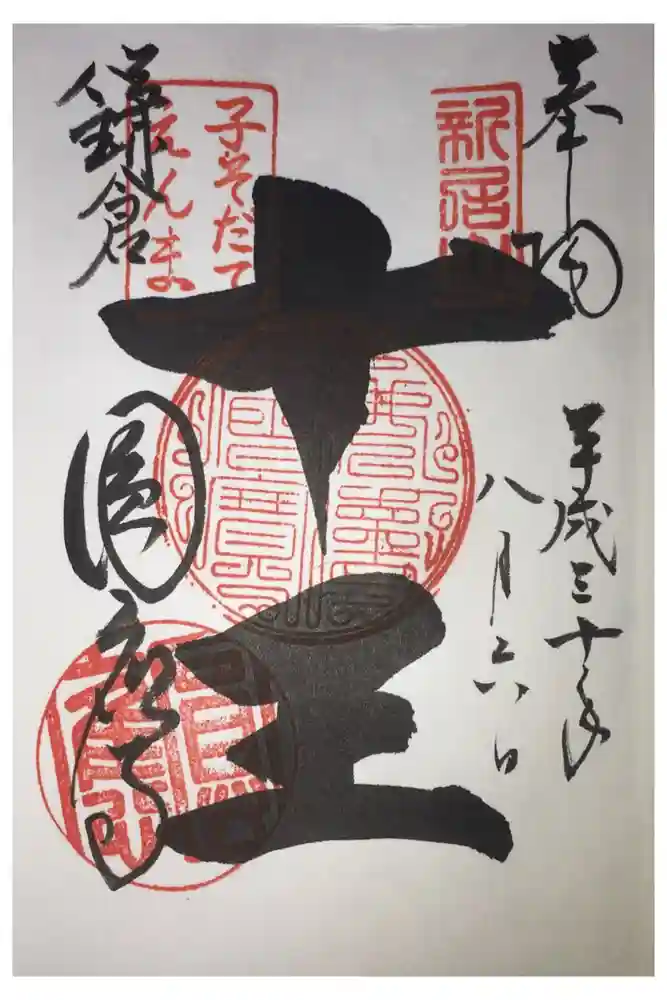 奉拝
平成三十年
八月六日
新居山
十王
子そだて
えんま
鎌倉
圓應寺